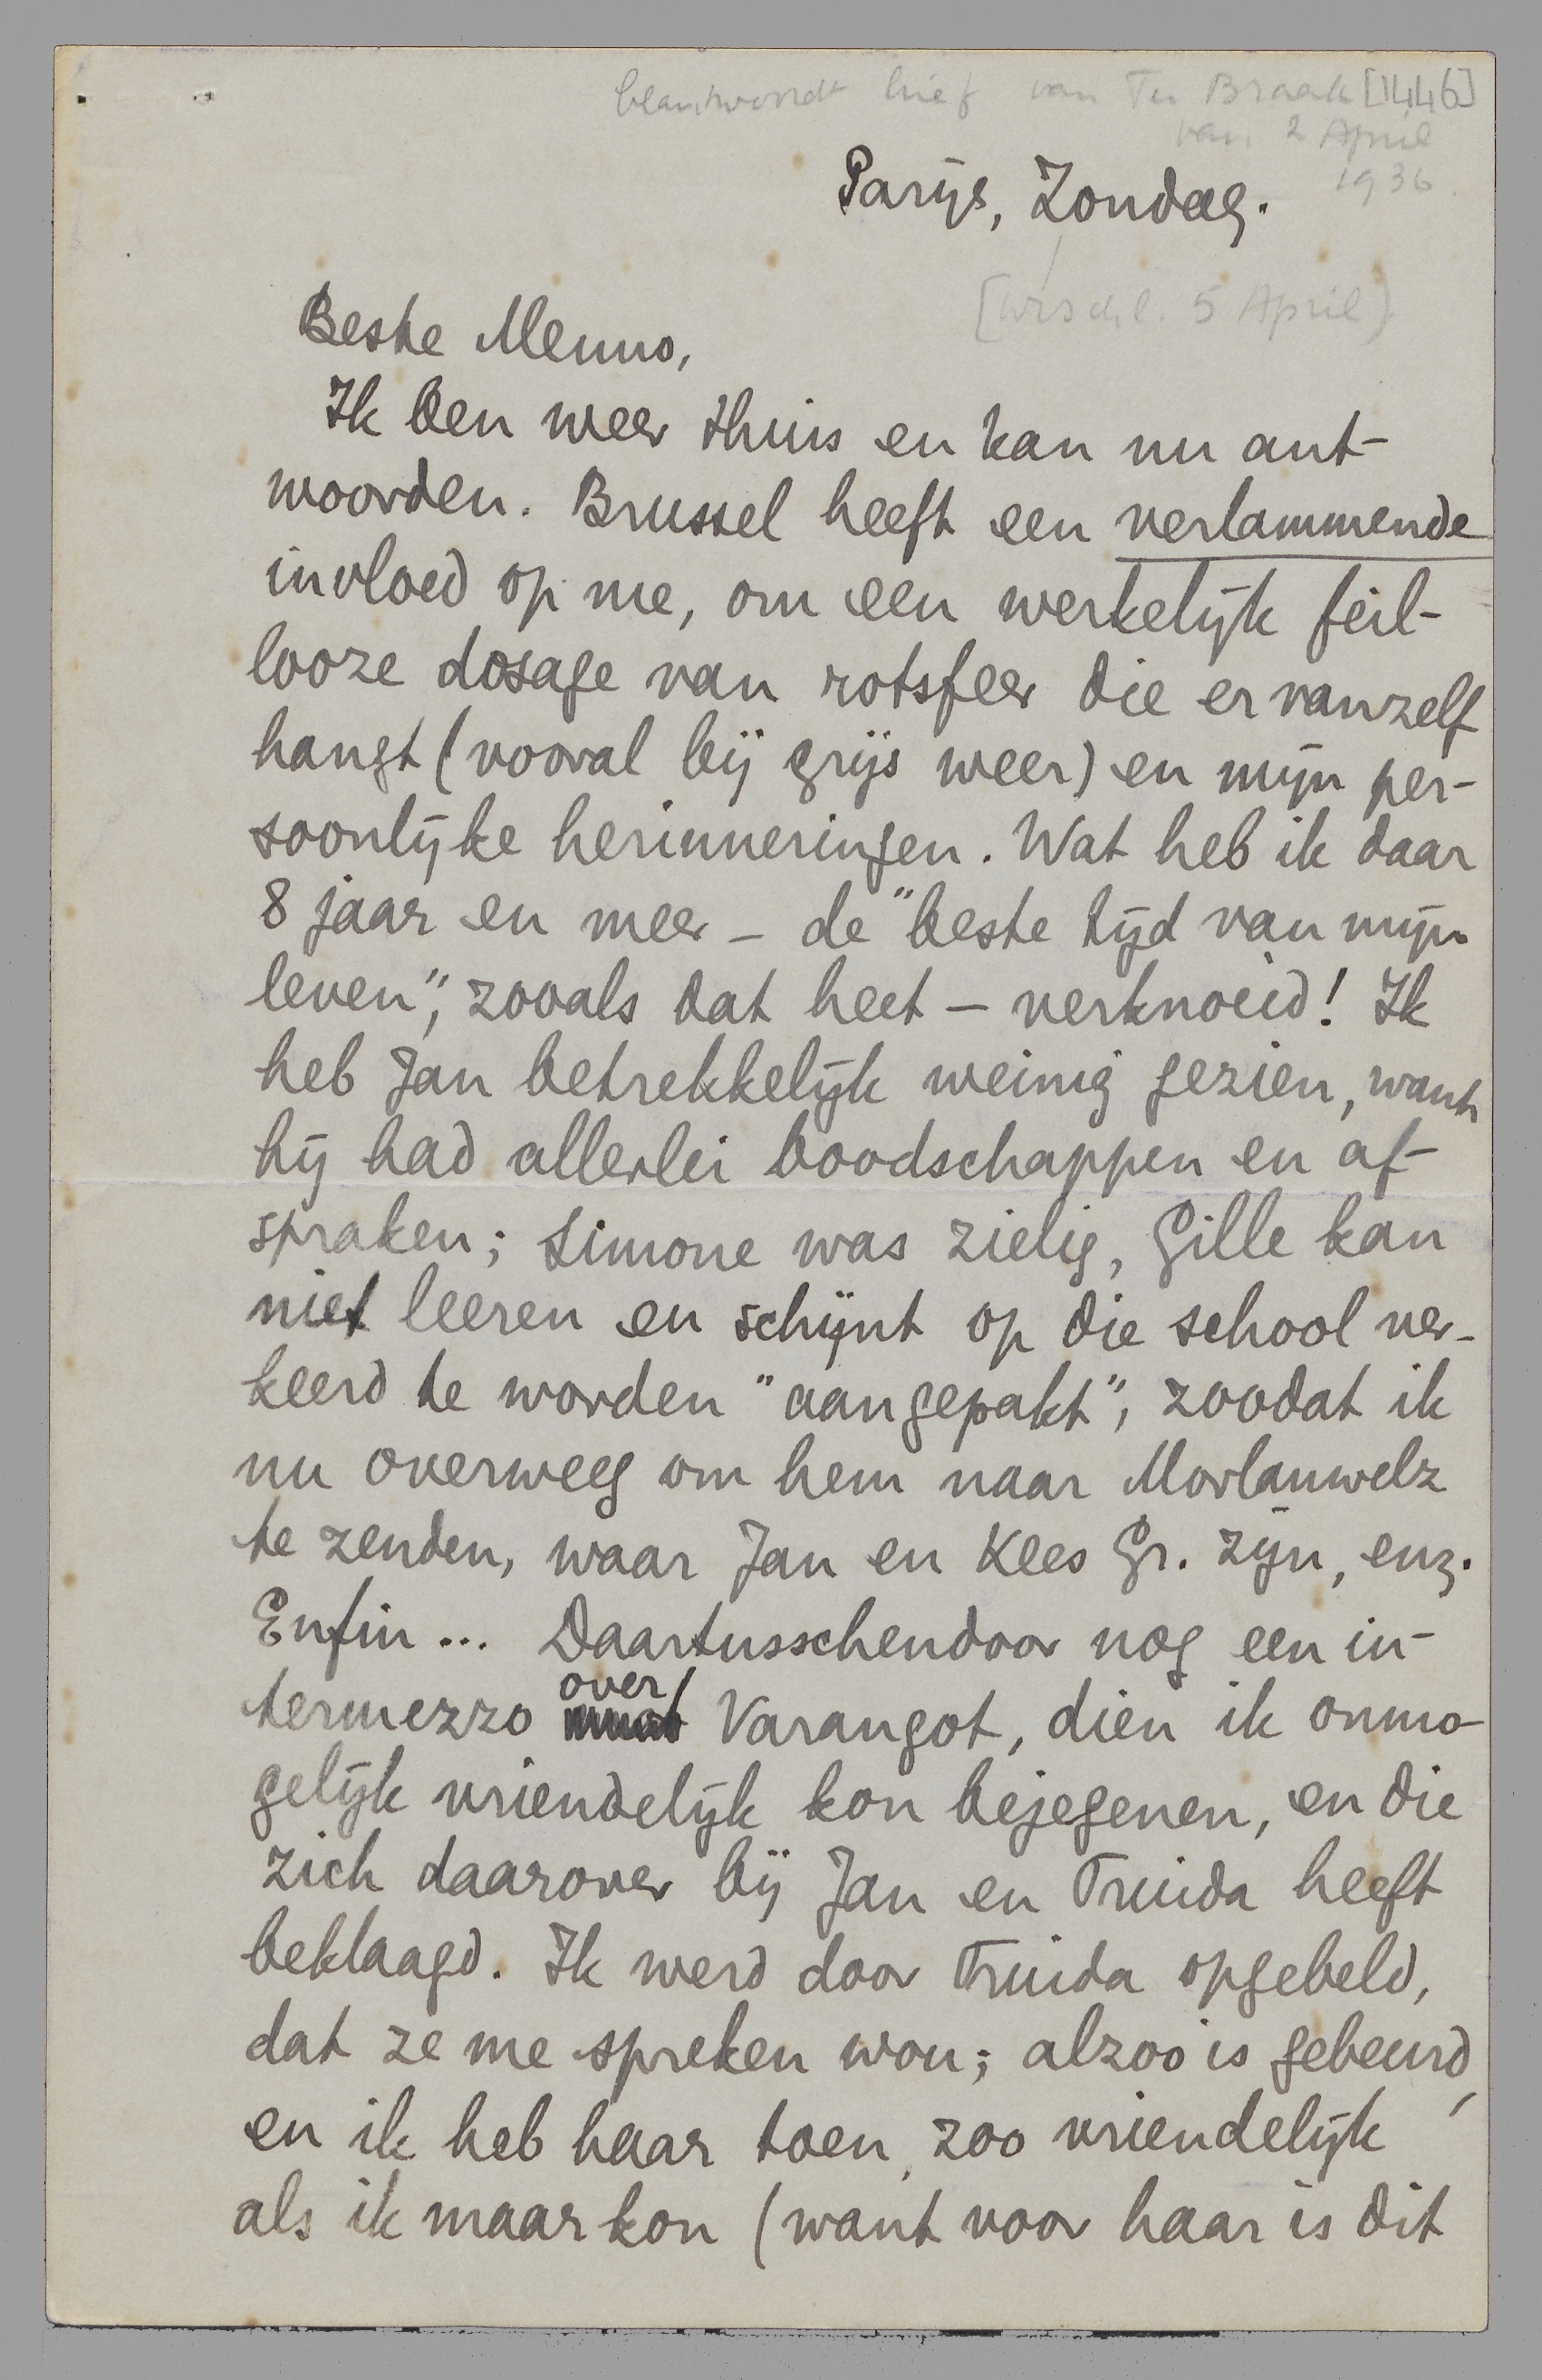 beantwoordt brief van Ter Braak [1446]
van 2 April
1936.
Parijs, Zondag.
[wschl. 5 April]
Beste Menno,
Ik ben weer thuis en kan nu ant-
woorden. Brussel heeft een verlammende
invloed op me, om een werkelijk feil-
looze dosage van rotsfeer die er vanzelf
hangt (vooral bij grijs weer) en mijn per-
soonlijke herinneringen. Wat heb ik daar
8 jaar en meer - de "beste tijd van mijn
leven", zooals dat heet - verknoeid! Ik
heb Jan betrekkelijk weinig gezien, want
hij had allerlei boodschappen en af-
spraken; Simone was zielig, Gille kan
niet leeren en schijnt op die school ver-
keerd te worden "aangepakt", zoodat ik
nu overweeg om hem naar Morlanwelz
te zenden, waar Jan en Kees Gr. zijn, enz.
Enfin... Daartusschendoor nog een in-
termezzo over Varangot, dien ik onmo-
gelijk vriendelijk kon bejegenen, en die
zich daarover bij Jan en Truida heeft
beklaagd. Ik werd door Truida opgebeld,
dat ze me spreken wou; alzoo is gebeurd,
en ik heb haar toen, zoo vriendelijk
als ik maar kon (want voor haar is dit